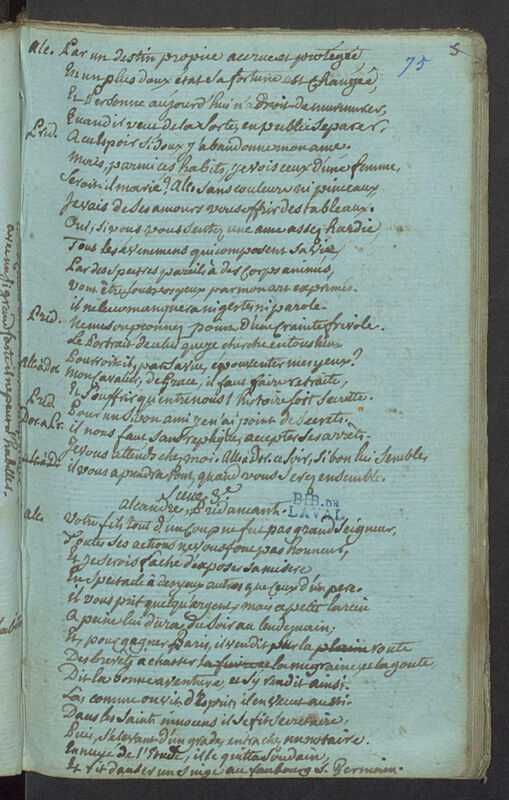 75
5
alc. Par un destin propice accrue et protégée
En un plus doux état sa fortune est changée,
Et Personne aujourd'hui n'a droit de murmurer,
Quand il veut de la Sorte, en public se parer,
Prid. A cet espoir si doux j'abandonne mon ame.
Mais, parmi ces habits, je vois ceux d'une femme,
Seroit il marié? Alc. Sans couleurs ni pinceaux
Je vais de ses amours vous offrir des tableaux.
Oui, si vous vous sentez une ame assez hardie,
Tous les évenemens qui composent sa vie,
Par des spectres pareils à des corps animés,
Vont être sous vos yeux par mon art exprimés.
il ne leur manquera ni gestes ni parole.
Prid. Ne me soupçonnez point d'une crainte frivole.
Le Portrait de celui que je cherche en tous lieux
Pourroit il, par sa vue, épouvanter mes yeux?
Alc. à Dor. Mon Cavalier, de grace, il faut faire retraite,
Et Souffrir qu'entre nous l'histoire soit secrette.
Prid. Pour un si bon ami je n'ai point de secret.
Dor. à Pr. il nous faut sans replique accepter ses arrets.
Je vous attends chez moi. Alc. à Dor. ce soir, si bon lui semble,
il vous aprendra tout, quand vous serez ensemble.
Scene 3e
alcandre, Pridamant.
BIB. DE LAVAL
alc. Votre fils tout d'un coup ne fut pas grand Seigneur,
Toutes ses actions ne vous font pas honneur,
Et je serois faché d'exposer sa misere
En spectacle à des yeux autres que ceux d'un pere.
il vous prit quelqu'argent, mais ce petit larcin
A peine lui dura du soir au lendemain;
Et, pour gagner Paris, il vendit par la plaine route
Des brevets à chasser la fievre la migraine, et la goute,
Dit la bonne aventure, et s'y rendit ainsi.
Là, comme on vit d'Esprit, il en vecut aussi.
Dans les Saints innocens il se fit Secretaire.
Puis, s'elevant d'un grade, entra chez un notaire.
Ennuyé de l'Etude, il le quitta soudain,
Et fit danser un Singe au faubourg S. Germain.